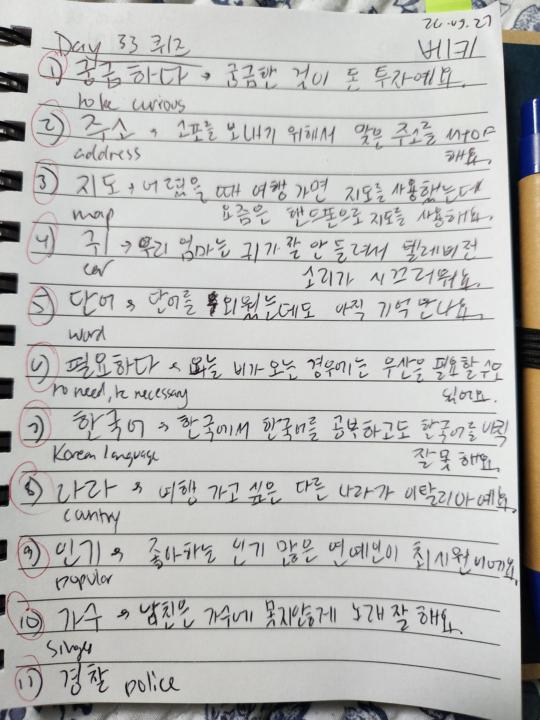 26.09.27
Day 33 퀴즈
베키
1) 궁금하다 → 궁금한 것이 돈 투자예요.
to be curious
2) 주소 → 소포를 보내기 위해서 맞은 주소를 써야
address 해요.
3) 지도 → 어렸을 때 여행 가면 지도를 사용했는데
map 요즘은 핸드폰으로 지도를 사용해요.
4) 귀 → 우리 엄마는 귀가 잘 안 들려서 텔레비전
ear 소리가 시끄러워요.
5) 단어 → 단어를 외웠는데도 아직 기억 안 나요.
word
6) 필요하다 → 오늘 비가 오는 경우에는 우산을 필요할 수도
to need, be necessary 있어요.
7) 한국어 → 한국에서 한국어를 공부하고도 한국어를 아직
Korean language 잘 못 해요.
8) 나라 → 여행 가고 싶은 다른 나라가 이탈리아예요.
country
9) 인기 → 좋아하는 인기 많은 연예인이 최시원이에요.
popular
10) 가수 → 남친은 가수에 못지않게 노래 잘 해요.
singer
11) 경찰 police